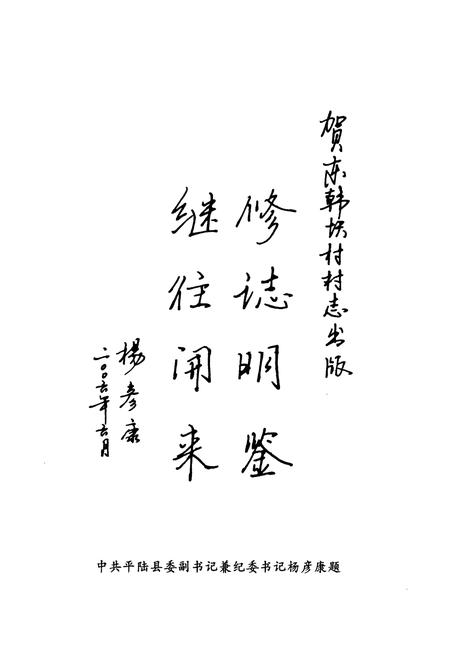 贺东韩坡村村志出版
修誌明鉴
继往开来
楊彦康
二00六年六月
中共平陆县委副书记兼纪委书记杨彦康题